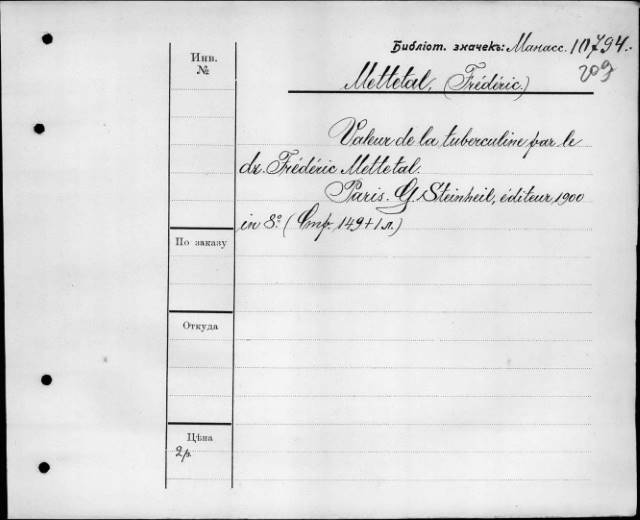 Библіот. значекъ: Манасс. 10794.
209
Инв.
№
Mettetal, (Frédéric.)
Valeur de la tuberculine par le
dr. Frédéric Mettetal.
Paris. G. Steinheil, éditeur, 1900
in 8º. (Стр. 149+1 л.)
По заказу
Откуда
Цѣна
2 р.